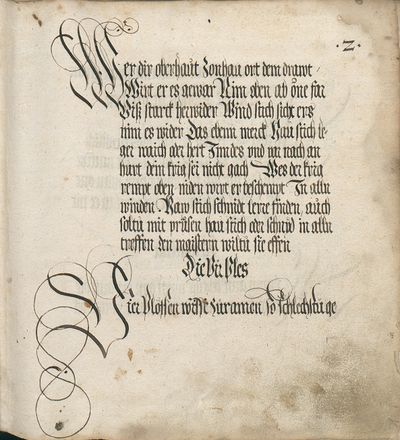 ·2·
Wer dir oberhaut Zonhau ort dem drawt /
Wirt er es gewar Nim oben ab öne far
Biß starck herwider Wind stich sicht ers
nim es wider Das ebenn merck Hau stich le
ger waich oder hert Inndes vnd var nach an
hurt dein krig sei nicht gach Wes der krig
rempt oben niden wirt er beschempt In alln
winden Haw stich schnidt lerre finden, auch
soltu mit prüfen hau stich oder schnid in alln
treffen den maistern wiltu sie effen
Die Vir Ples
Vier Plossen wisse zuramen so schlechstu ge